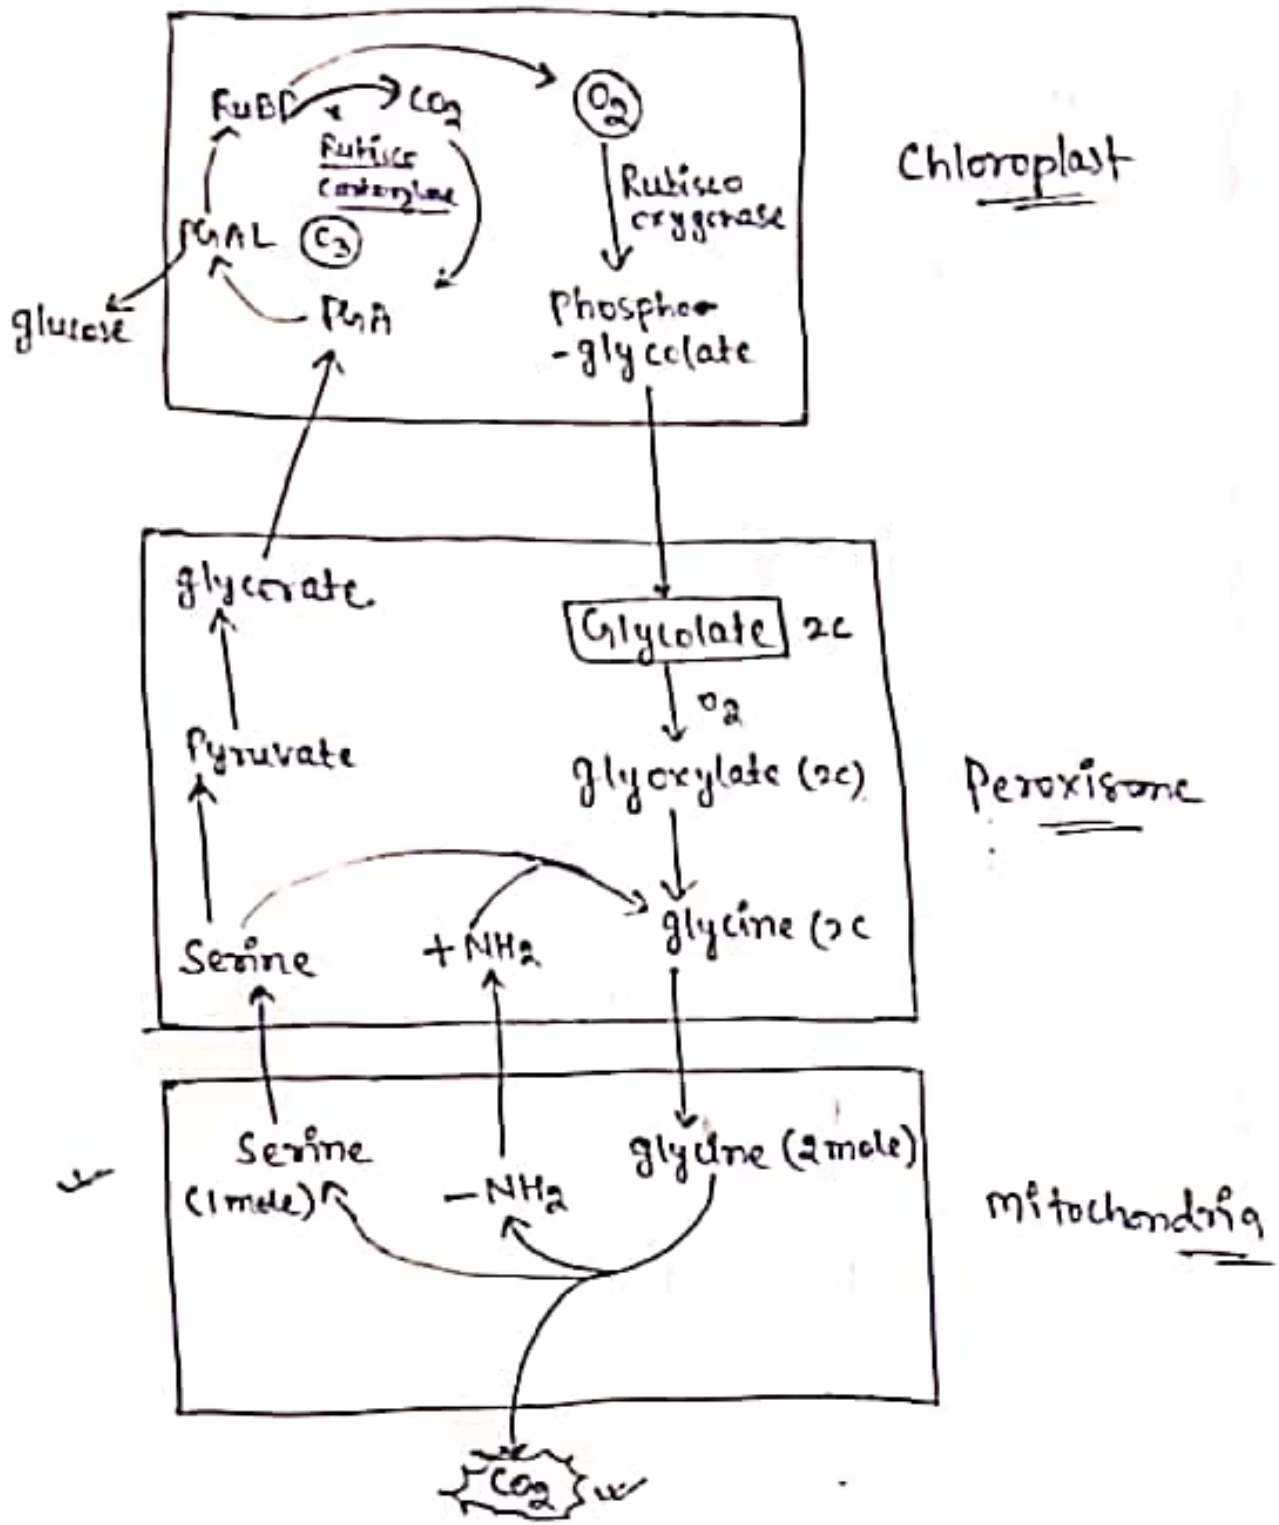 RuBP
CO2
O2
Rubisco
Carboxylase
Rubisco
oxygenase
Chloroplast
PGAL
C3
glucose
PGA
Phospho
-glycolate
glycerate
Glycolate 2C
O2
Pyruvate
glyoxylate (2C)
Peroxisome
Serine
+NH2
glycine (2C
Serine
(1 mole)
-NH2
glycine (2 mole)
Mitochondria
CO2